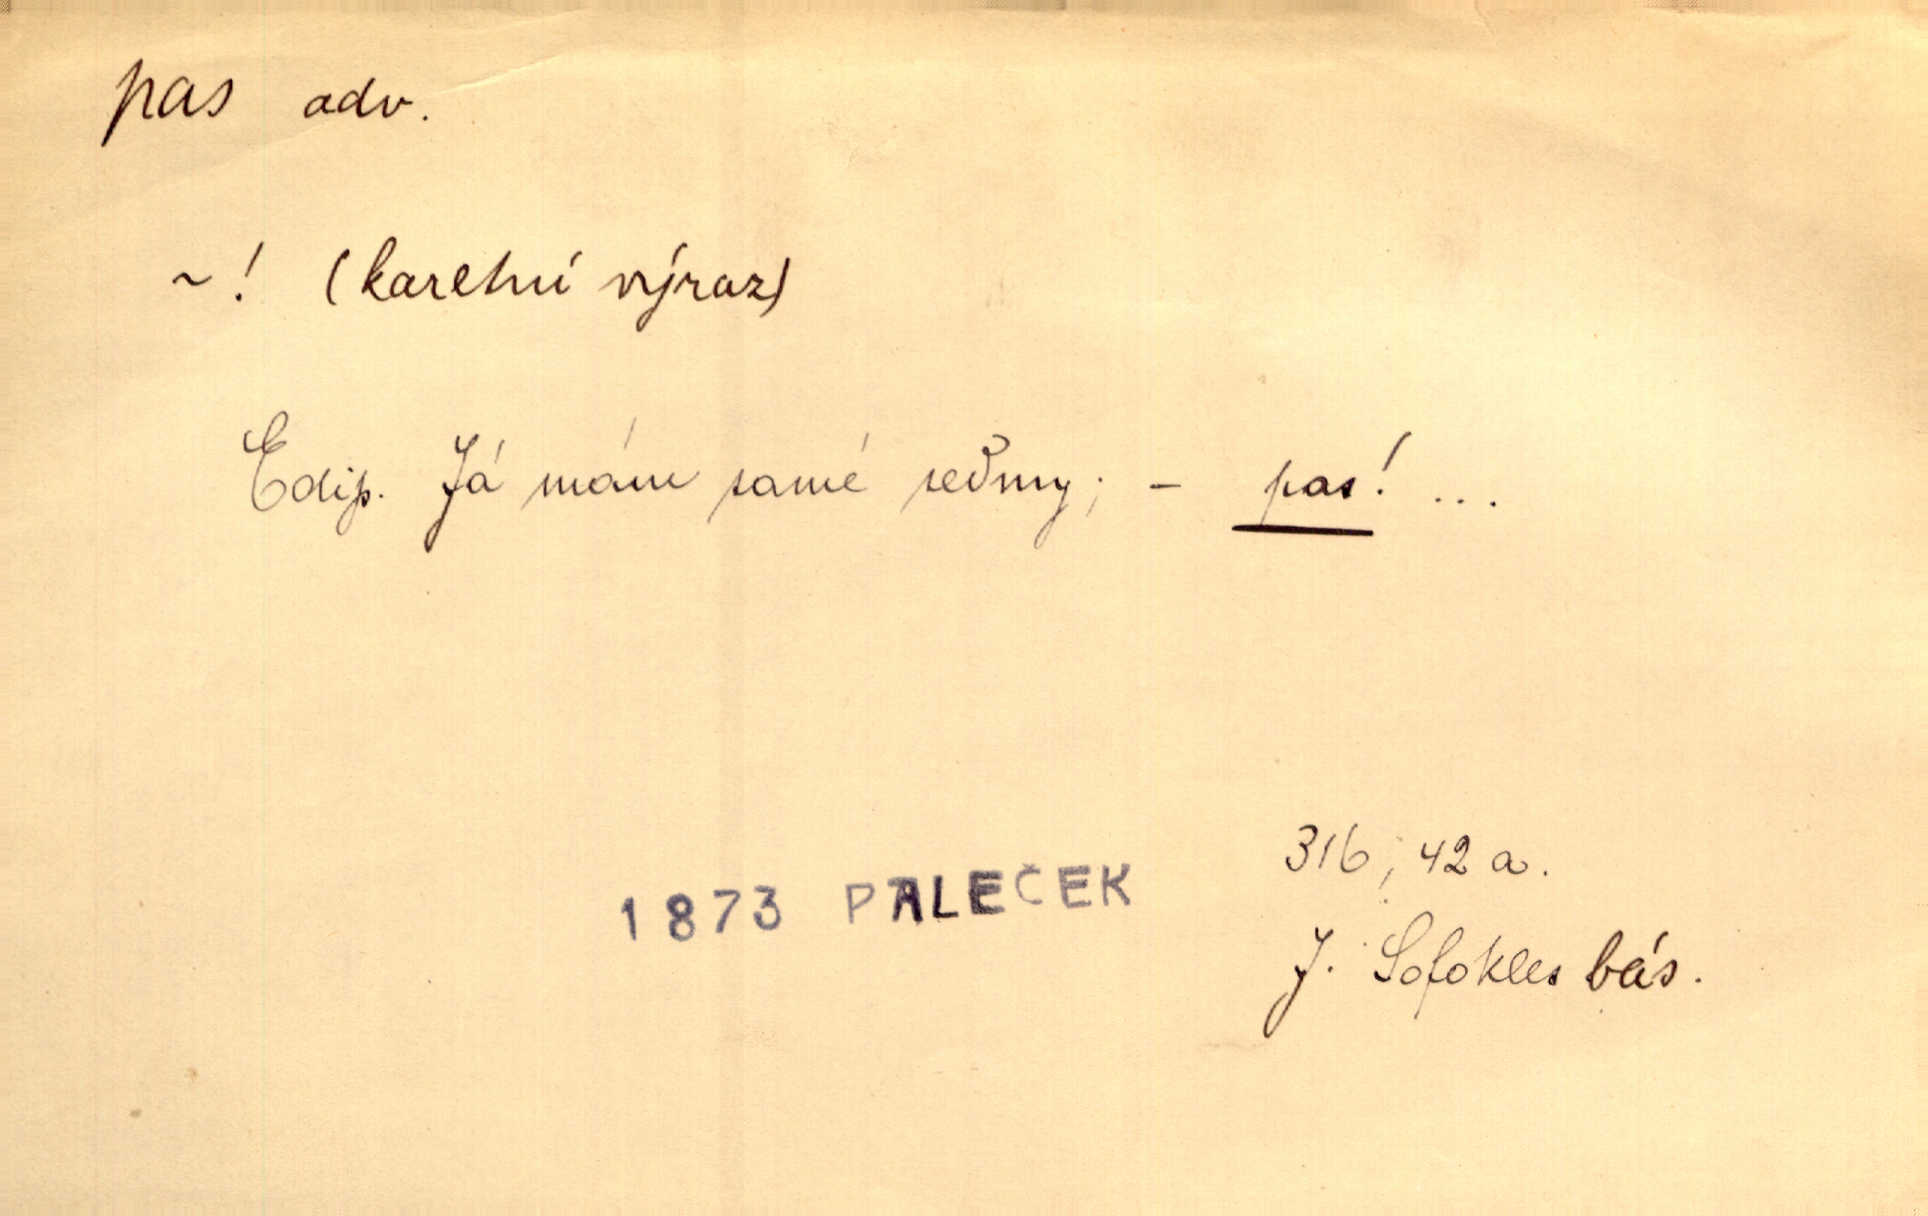 pas adv.
~! (karetní výraz)
Edip. Já mám samé sedmy; - pas! ...
316, 42 a.
1873 PALEČEK
J. Sofokles bás.